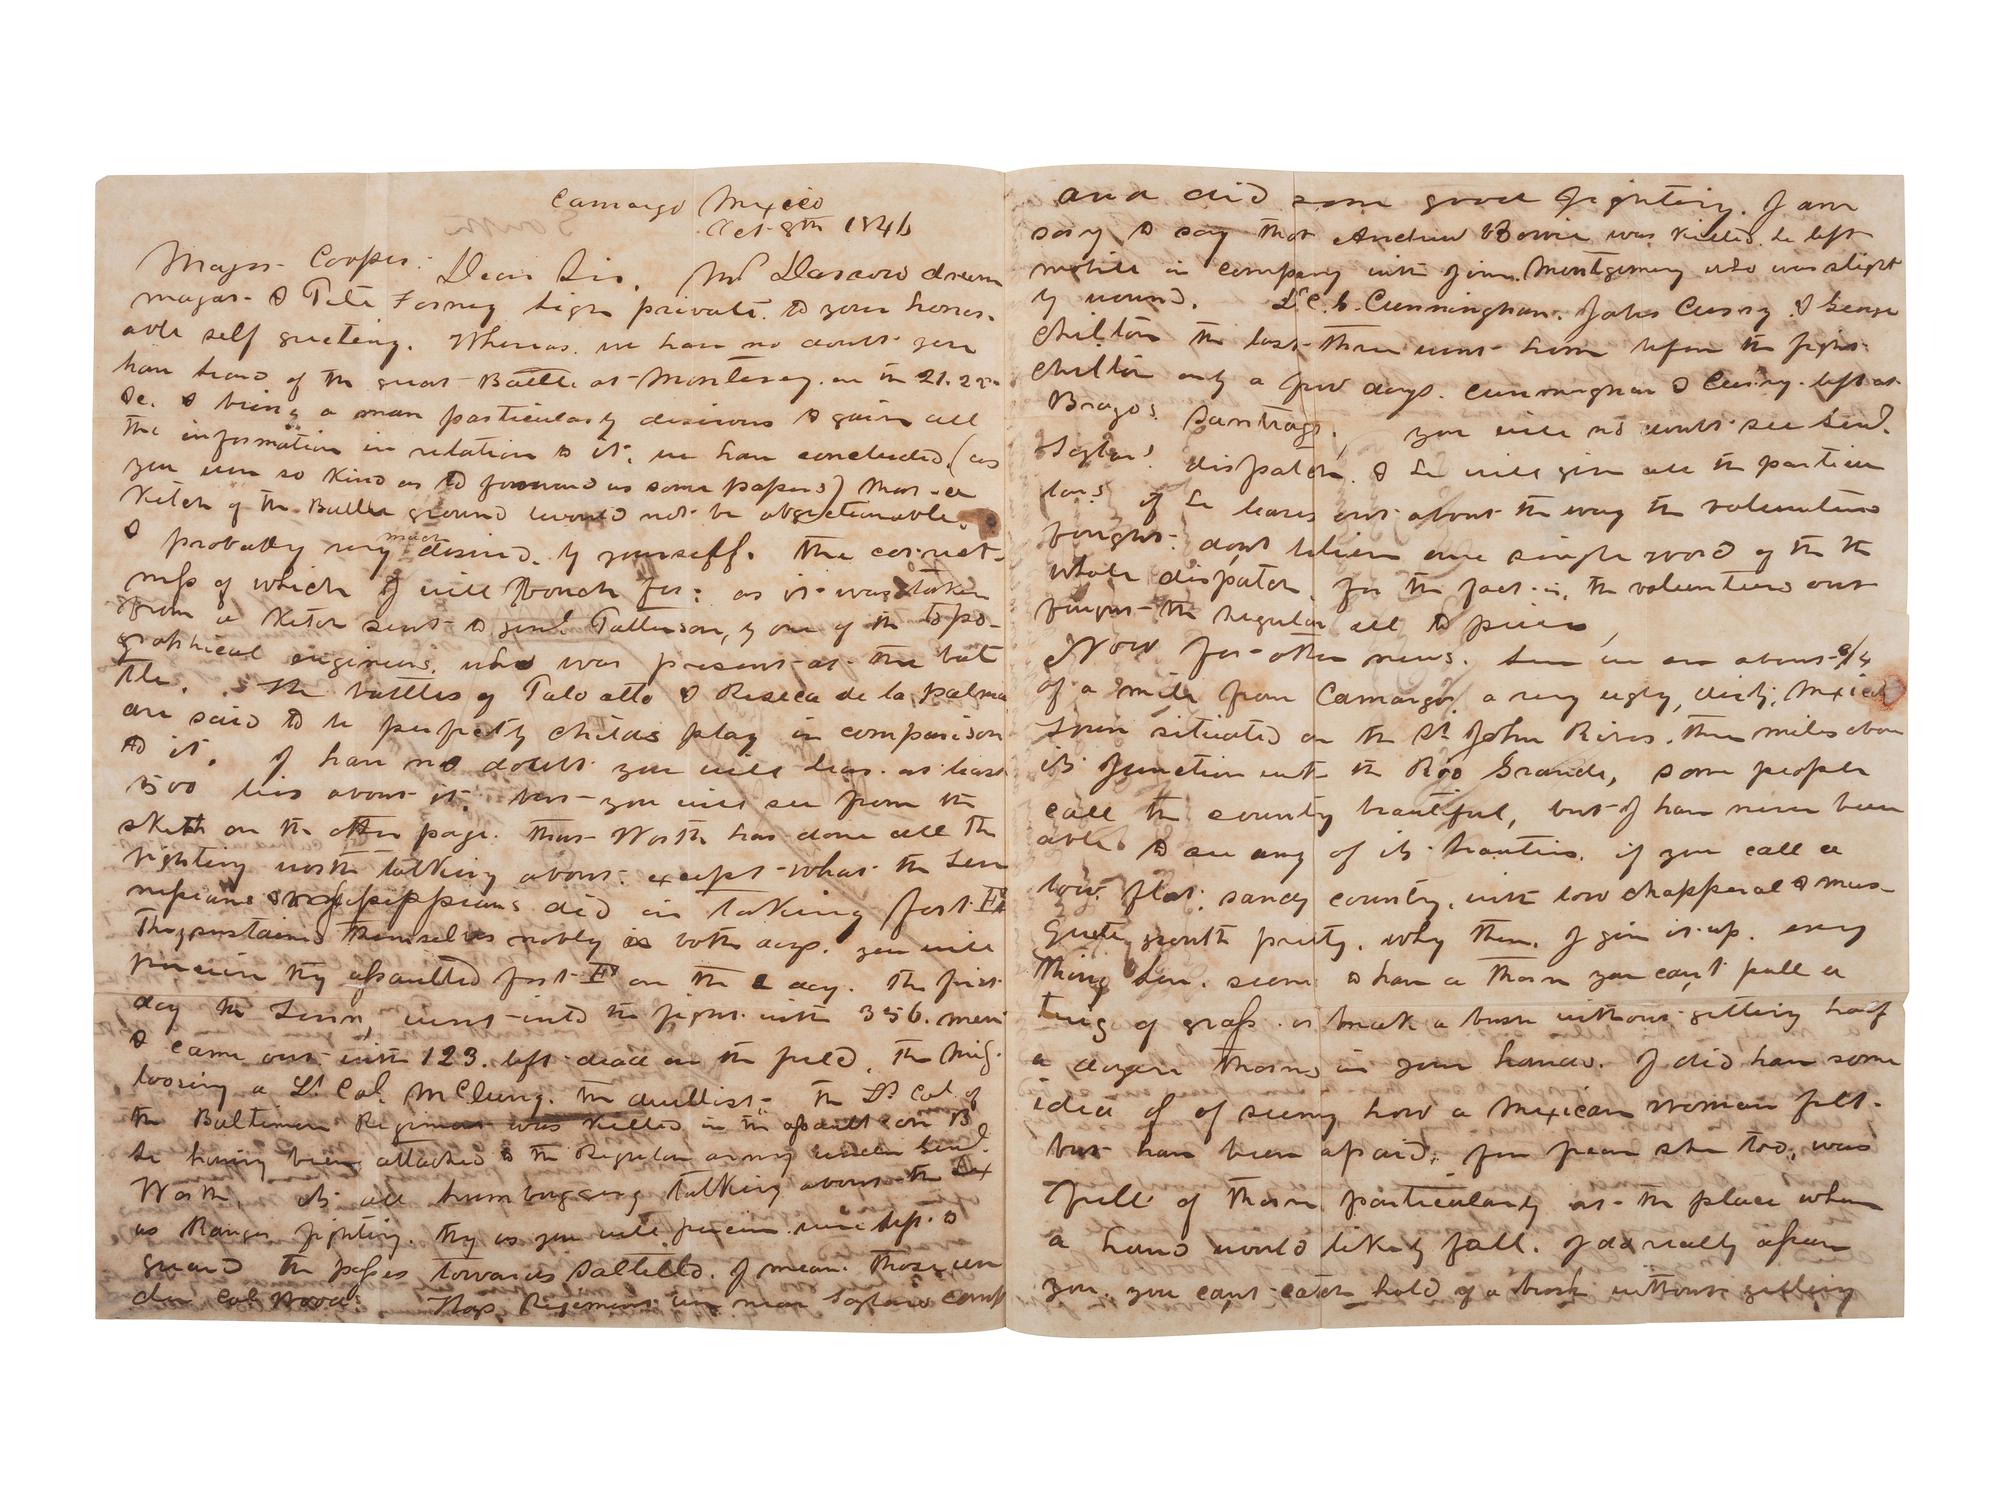 Camargo Mexico
Oct. 8th 1846
Major Cooper. Dear Sir, Mr drum
major & Pete Forney high private to your honor-
able self greeting. Whereas we have no doubt you
have heard of the great Battle at Monterey on the 21. 22.
&c. & being a man particularly desirous to gain all
the information in relation to it, we have concluded (as
you were so kind as to forward us some papers) that a
sketch of the Battle ground would not be objectionable.
& probably very much desired by yourself. The correct-
ness of which I will vouch for: as it was taken
from a sketch sent to Genl. Patterson, by one of the Topo-
graphical engineers, who was present at the bat
tle. The battles of Palo alto & Reseca de la palma
are said to be perfectly childs play in comparison
to it. I have no doubt you will hear at least
500 lies about it, but you will see from the
sketch on the other page. that Worth has done all the
fighting worth talking about, except what the Tenn
nesseans & Mississippians did in taking fort
They sustained themselves nobly both days. you will
perceive they assaulted fort on the 2 day. The first
day the Tenn, went into the fight with 356. men
& came out with 123. left dead on the field, the Miss.
loosing a Lt Col. McClung. the duellist. The Lt Col of
the Baltimore Regiment was killed in the assault on B
he having been attached to the Regular army under Genl.
Worth, its all humbugging talking about the Tex
as Ranger fighting. they as you will perceive were left to
guard the passes towards Saltillo. I mean those un
der Col Wood. Hays Regiment were near Taylors camp
and did some good fighting. I am
sory to say that Andrew Bowie was killed. he left
mobile in company with Jim. Montgomery who was slight
ly wound. Lt C. S. Cunningham. John Curry & George
Chilton the last three went home before the fight.
Chilton only a few days. Cunningham & Curry left at
Brazos Santiago. you will no doubt see Genl.
Taylors dispatch. & he will give all the particu
lars if he leaves out about the way the volunteers
fought. dont believe one single word of the
whole dispatch, for the fact is, the volunteers out
fought the regular all to pieces,
Now for other news. here we are about 3/4
of a mile from Camargo. a very ugly, dirty, Mexican
Town situated on the St John River. three miles above
its Junction with the Rio Grande, some people
call the county beautiful, but I have never been
able to see any of its beauties. if you call a
low flat, sandy county, with low chapperal & mus-
quete growth pretty. why then. I give it up. every
thing here. seems to have a thorn you can't pull a
twig of grass. or break a bush without getting half
a dozen thorns in your hands. I did have some
idea of of seeing how a Mexican woman felt.
but have been afraid, for fear she too, was
full of thorns particularly at the place where
a hand would likely fall. I do really assure
you. you can't catch hold of a bush without getting